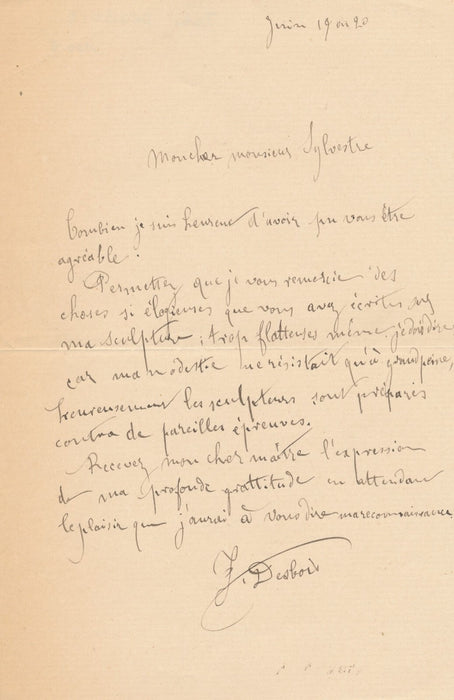 Juin 19 ou 20
Mon cher monsieur Sylvestre
Combien je suis heureux d'avoir pu vous être
agréable.
Permettez que je vous remercie des
choses si élogieuses que vous avez écrites sur
ma sculpture ; trop flatteuses même je dois dire
car ma modestie ne résistait qu'à grand peine,
heureusement les sculpteurs sont préparés
contre de pareilles épreuves.
Recevez mon cher maître l'expression
de ma profonde grattitude en attendant
le plaisir que j'aurai à vous dire ma reconnaissance
J. Desbois